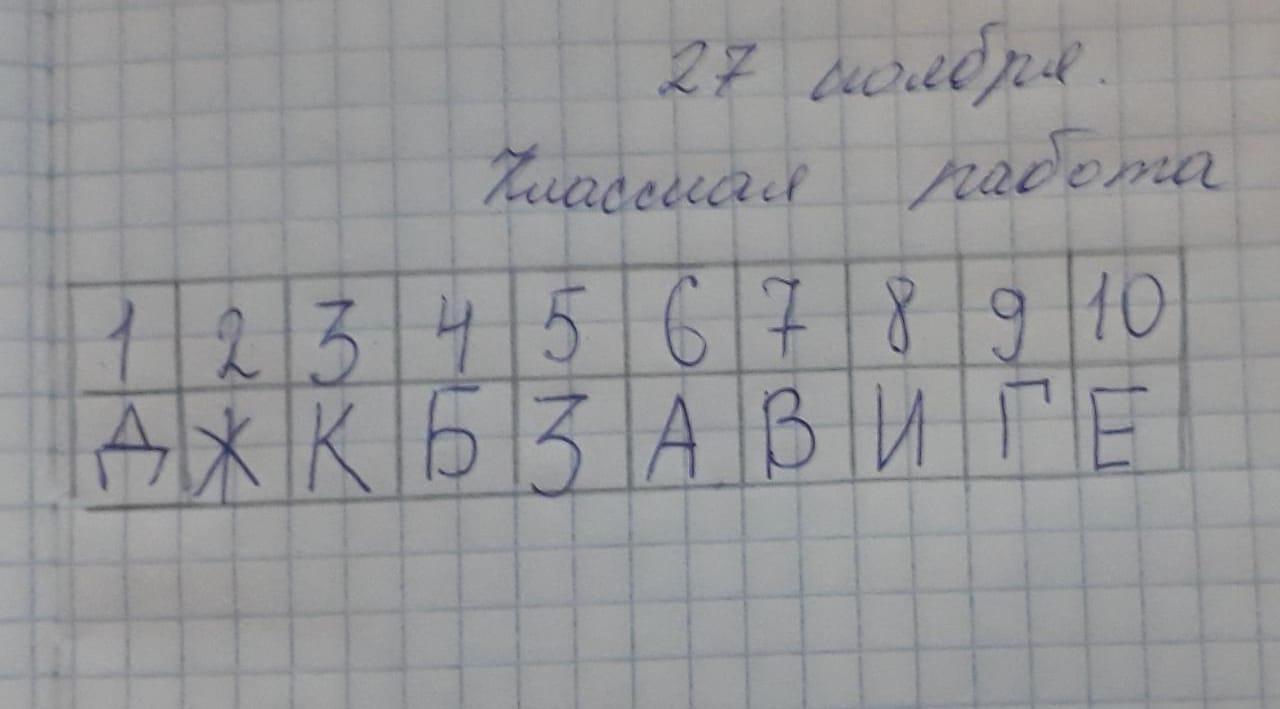 27 ноября.
Классная работа
1 2 3 4 5 6 7 8 9 10
Д Ж К Б З А В И Г Е